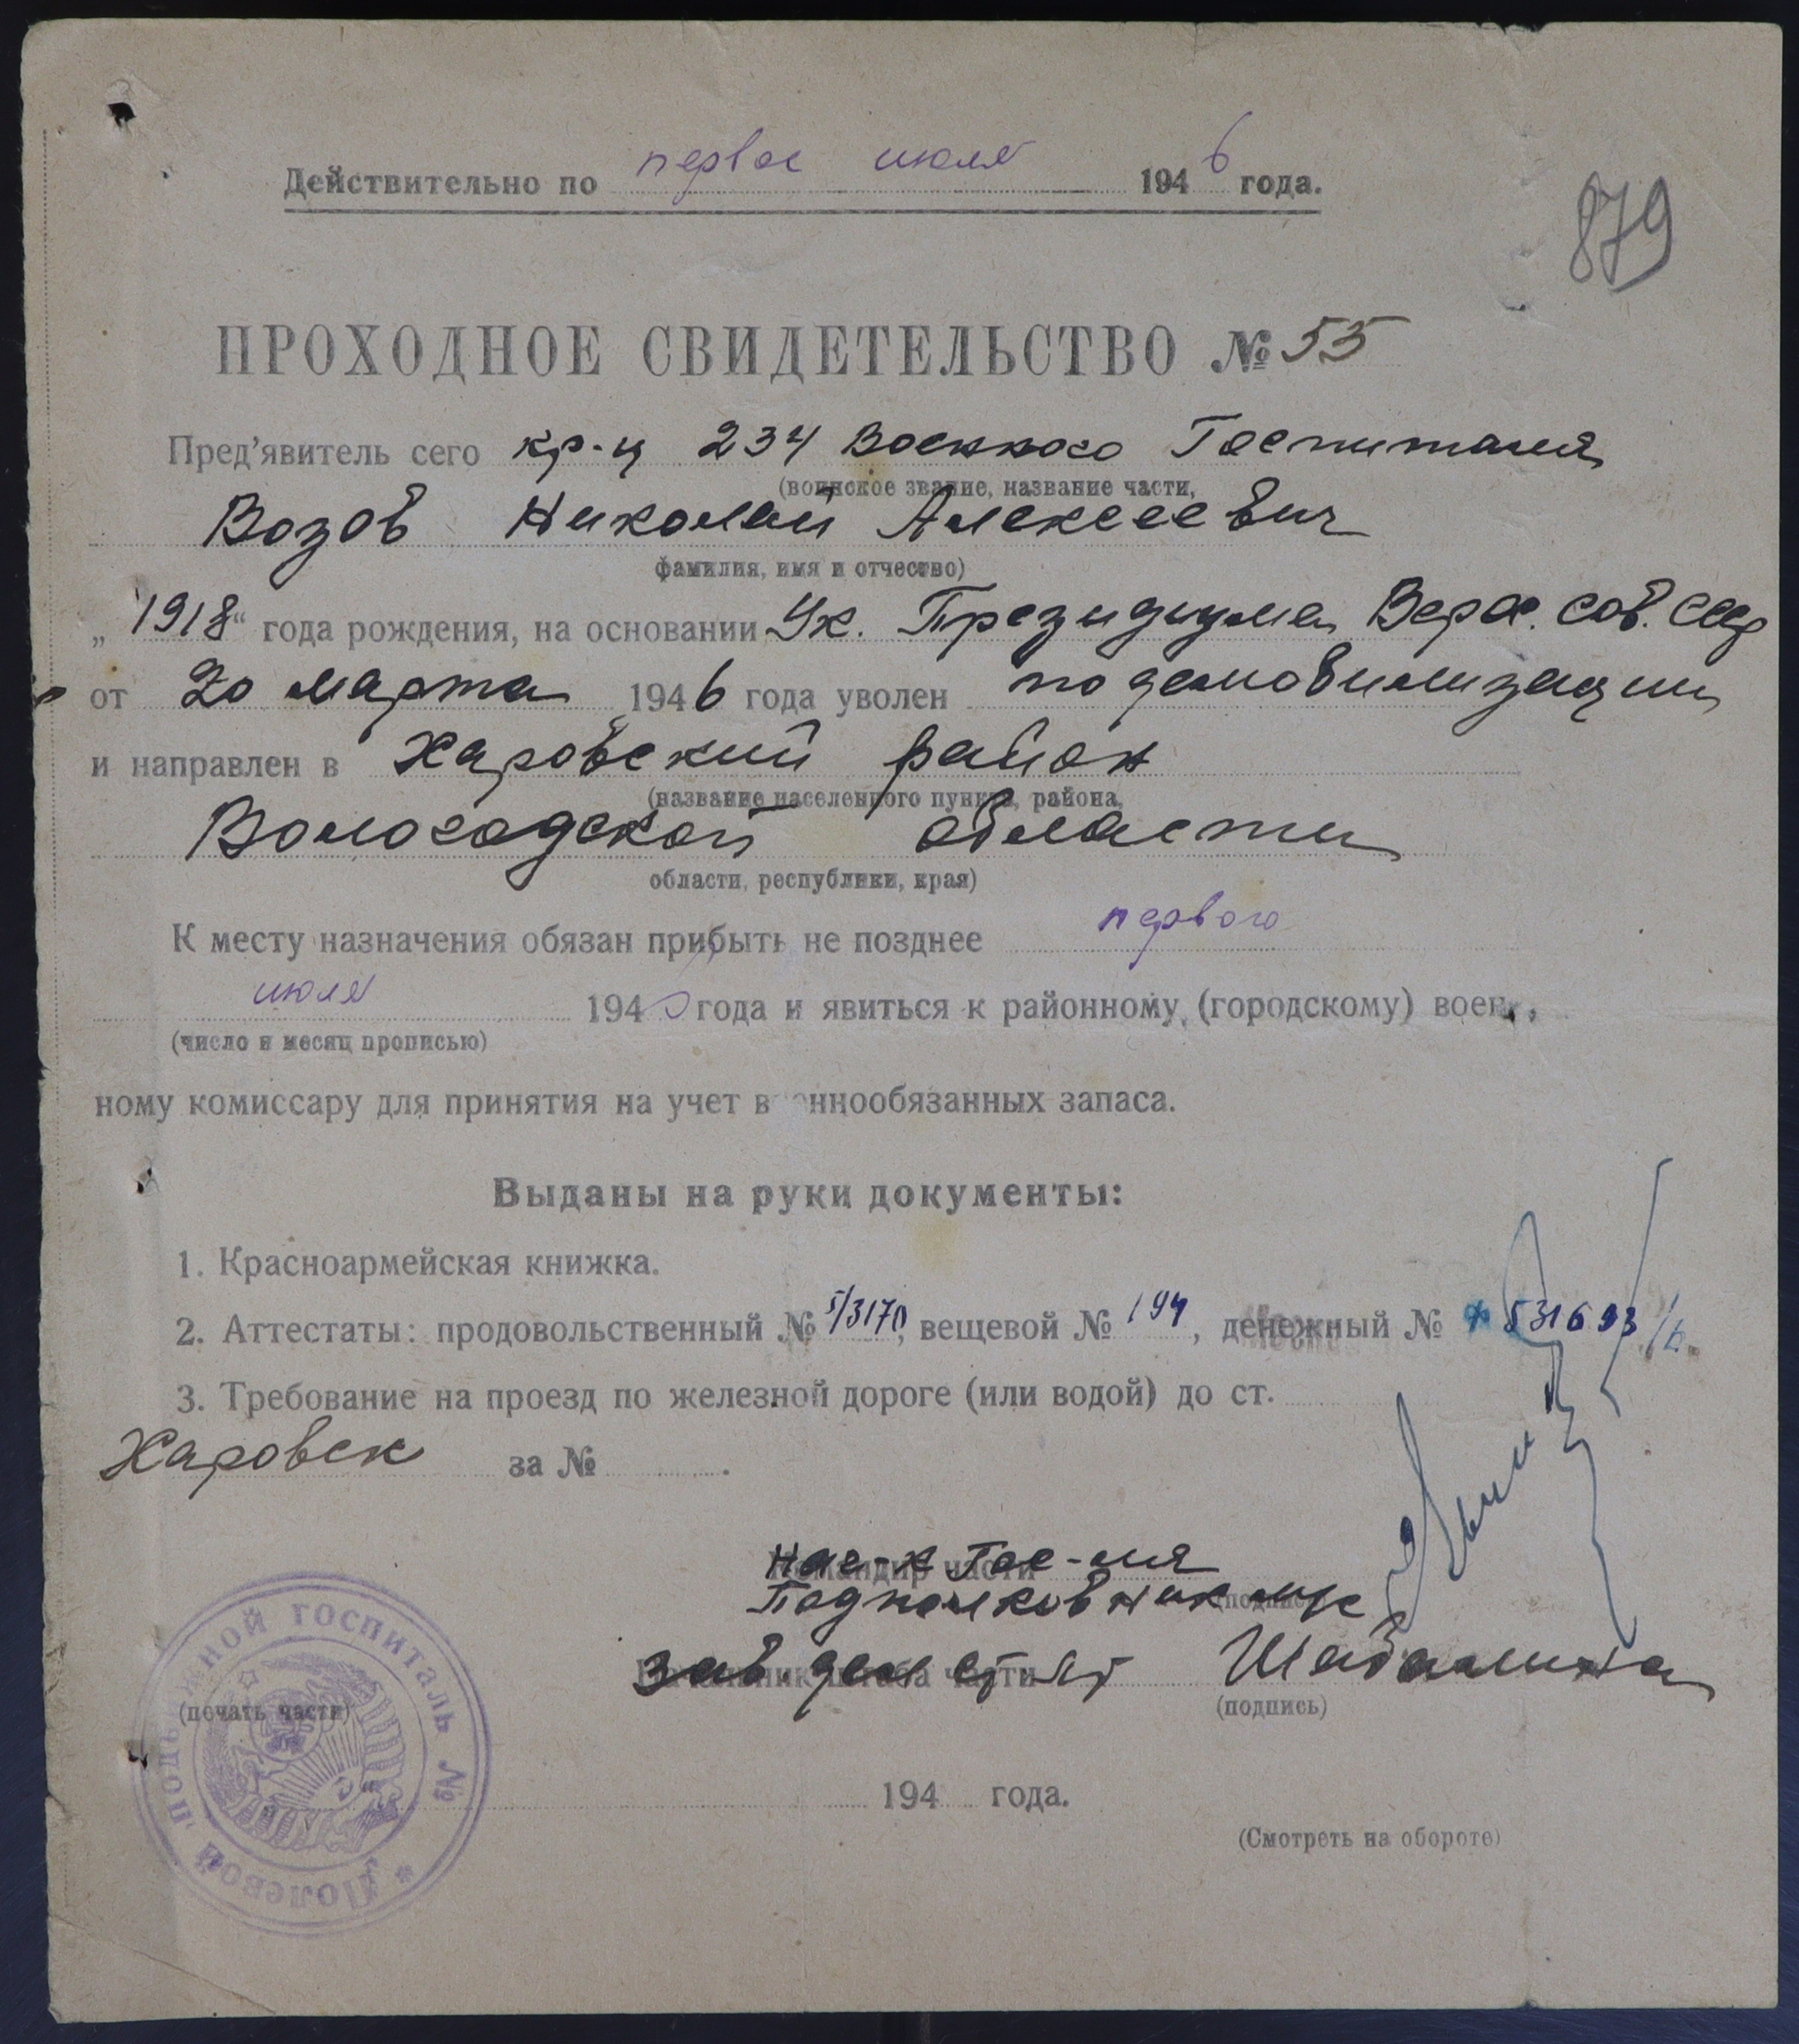 Действительно по первое июля 1946 года.
879
ПРОХОДНОЕ СВИДЕТЕЛЬСТВО № 55
Пред'явитель сего кр-ц 234 Военного Госпиталя
(воинское звание, название части,
Возов Николай Алексеевич
фамилия, имя и отчество)
„1918“ года рождения, на основании Ук. Президиума Верх. Сов. СССР
от 20 марта 1946 года уволен по демобилизации
и направлен в Харовский район
(название населенного пункта, района,
Вологодской области
области, республики, края)
К месту назначения обязан прибыть не позднее первого
июля 194 года и явиться к районному (городскому) воен-
(число и месяц прописью)
ному комиссару для принятия на учет военнообязанных запаса.
Выданы на руки документы:
1. Красноармейская книжка.
2. Аттестаты: продовольственный № 5/3170, вещевой № 194, денежный № 531693
3. Требование на проезд по железной дороге (или водой) до ст.
Харовск за № .
Нач-к Гос-ля
Командир части
Подполковник м/с
(подпись)
Зав. дел
Начальник штаба части
Шабалина
(подпись)
(печать части)
Полевой подвижной госпиталь №
194 года.
(Смотреть на обороте)